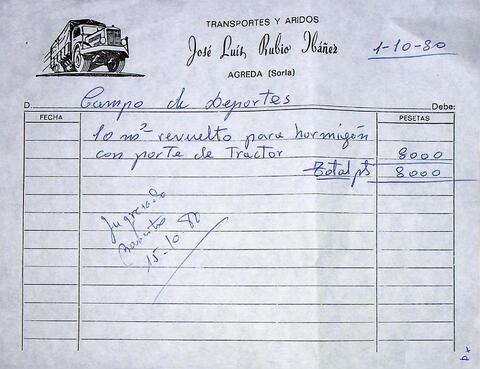 TRANSPORTES Y ARIDOS
José Luis Rubio Ibáñez
AGREDA (Soria)
1-10-80
D. Campo de Deportes Debe:
FECHA PESETAS
10 m² revuelto para hormigón
con porte de Tractor 8000
Total pts 8000
Ingresado
15-10-80